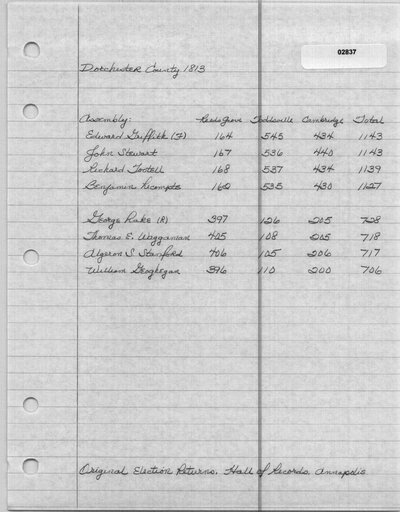 02837
Dorchester County 1813
Assembly: Reeds Grove Toddsville Cambridge Total
Edward Griffith (F) 164 545 434 1143
John Stewart 167 536 440 1143
Richard Tootell 168 537 434 1139
Benjamin Lecompte 162 535 430 1127
George Lake (R) 397 126 205 728
Thomas E. Waggaman 405 108 205 718
Algeron S Stanford 406 105 206 717
William Geoghegan 396 110 200 706
Original Election Returns, Hall of Records, Annapolis